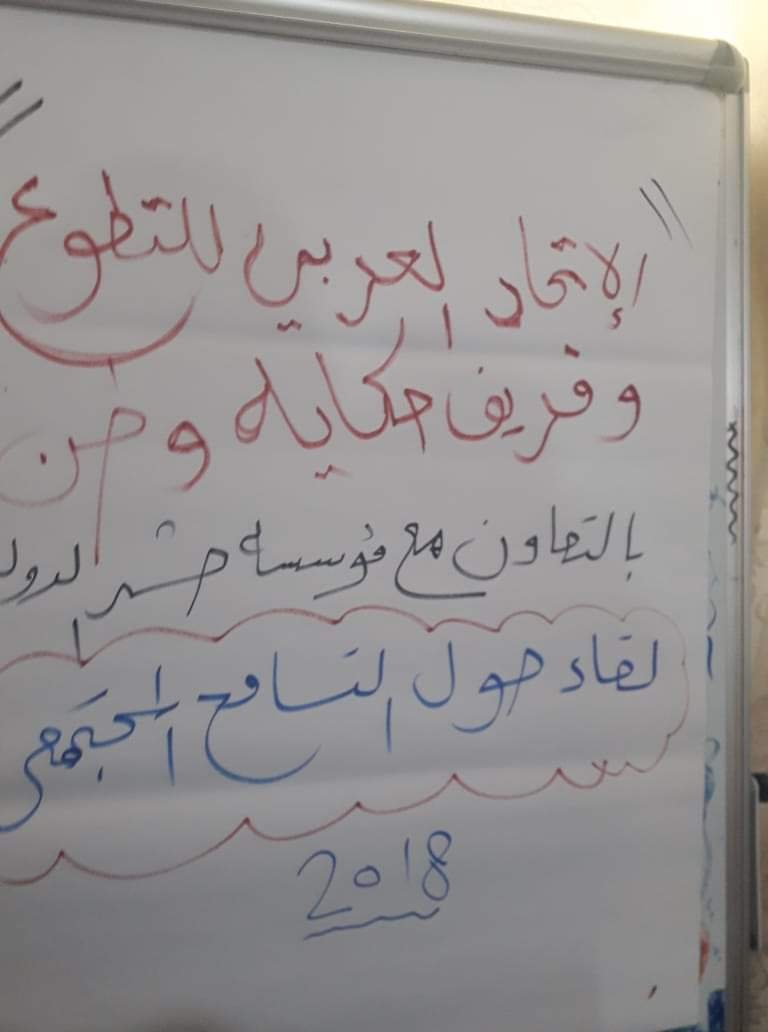 الإتحاد العربي للتطوع
وفريق حكاية وطن
بالتعاون مع مؤسسة
لقاء حول التسامح المجتمعي
2018